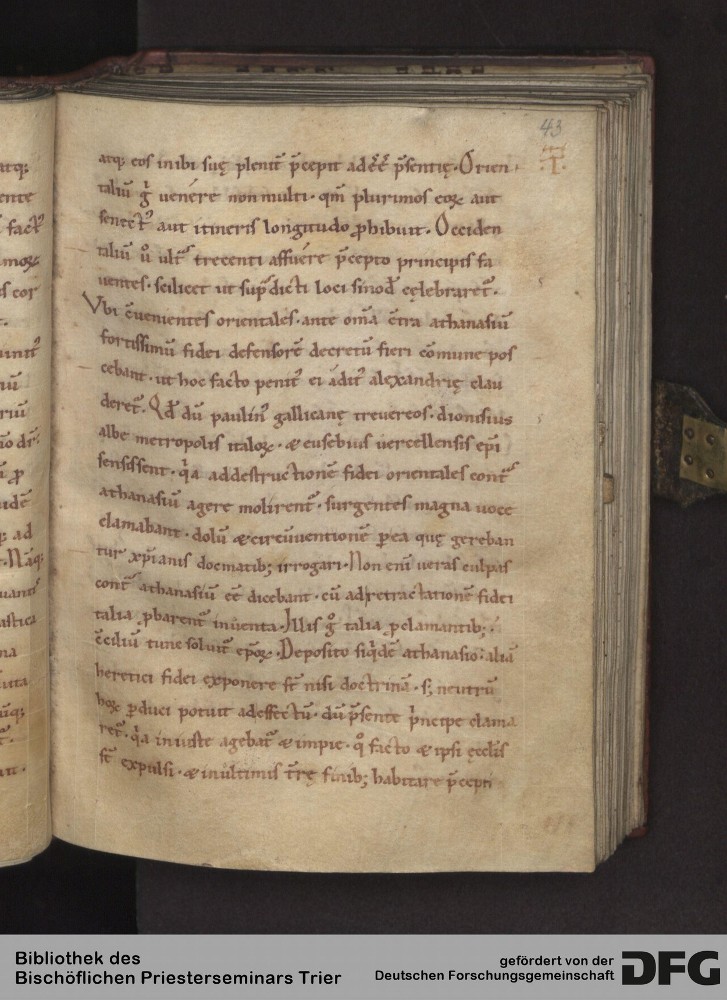 43
·I·
atq; eos inibi suę plenit̄ p̄cepit adeē p̄sentię. Orien
taliū g̊ uenere non multi. qm̄ plurimos eoꝝ aut
senect᷒ aut itineris longitudo ꝓhibuit. Occiden
taliū ů ultˢ trecenti affuere p̄cepto principis fa
uentes. scilicet ut sup̄dicti loci sinod᷒ cęlebraret᷒.
Vbi ēuenientes orientales. ante om̄a c̄tra athanasiū
fortissimū fidei defensorē decretū fieri cōmune pos
cebant. ut hoc facto penit᷒ ei adit᷒ alexandrię clau
deret᷒. Qd̄ dū paulin᷒ gallicanę treuereos. dionisius
albe metropolis italoꝝ. & eusebius uercellensis ep̄i
sensissent. q̊a addestructionē fidei orientales cont̄
athanasiū agere molirent᷒. surgentes magna uoce
clamabant. dolū & circūuentionē ꝑea quę gereban
tur xp̄ianis docmatib; irrogari. Non eni̅ ueras culpas
cont̄ athanasiū eē dicebant. cū adretractationē fidei
talia ꝓbarent᷒ inuenta. Illis g̊ talia ꝓclamantib;.
c̄ciliū tunc soluit᷒ ep̄oꝝ. Deposito siq̊dē athanasio. aliā
heretici fidei exponere st̄ nisi doctrinā. s; neutrū
hoꝝ ꝑduci potuit adeffectū. dū p̄sente p̊ncipe clama
ret᷒. q̊a iniuste agebat᷒ & impie. q̊ facto & ipsi ęccl̄is
st̄ expulsi. & inultimis t̄rę finib; habitare p̄cepti
Bibliothek des
Bischöflichen Priesterseminars Trier
gefördert von der
Deutschen Forschungsgemeinschaft
DFG